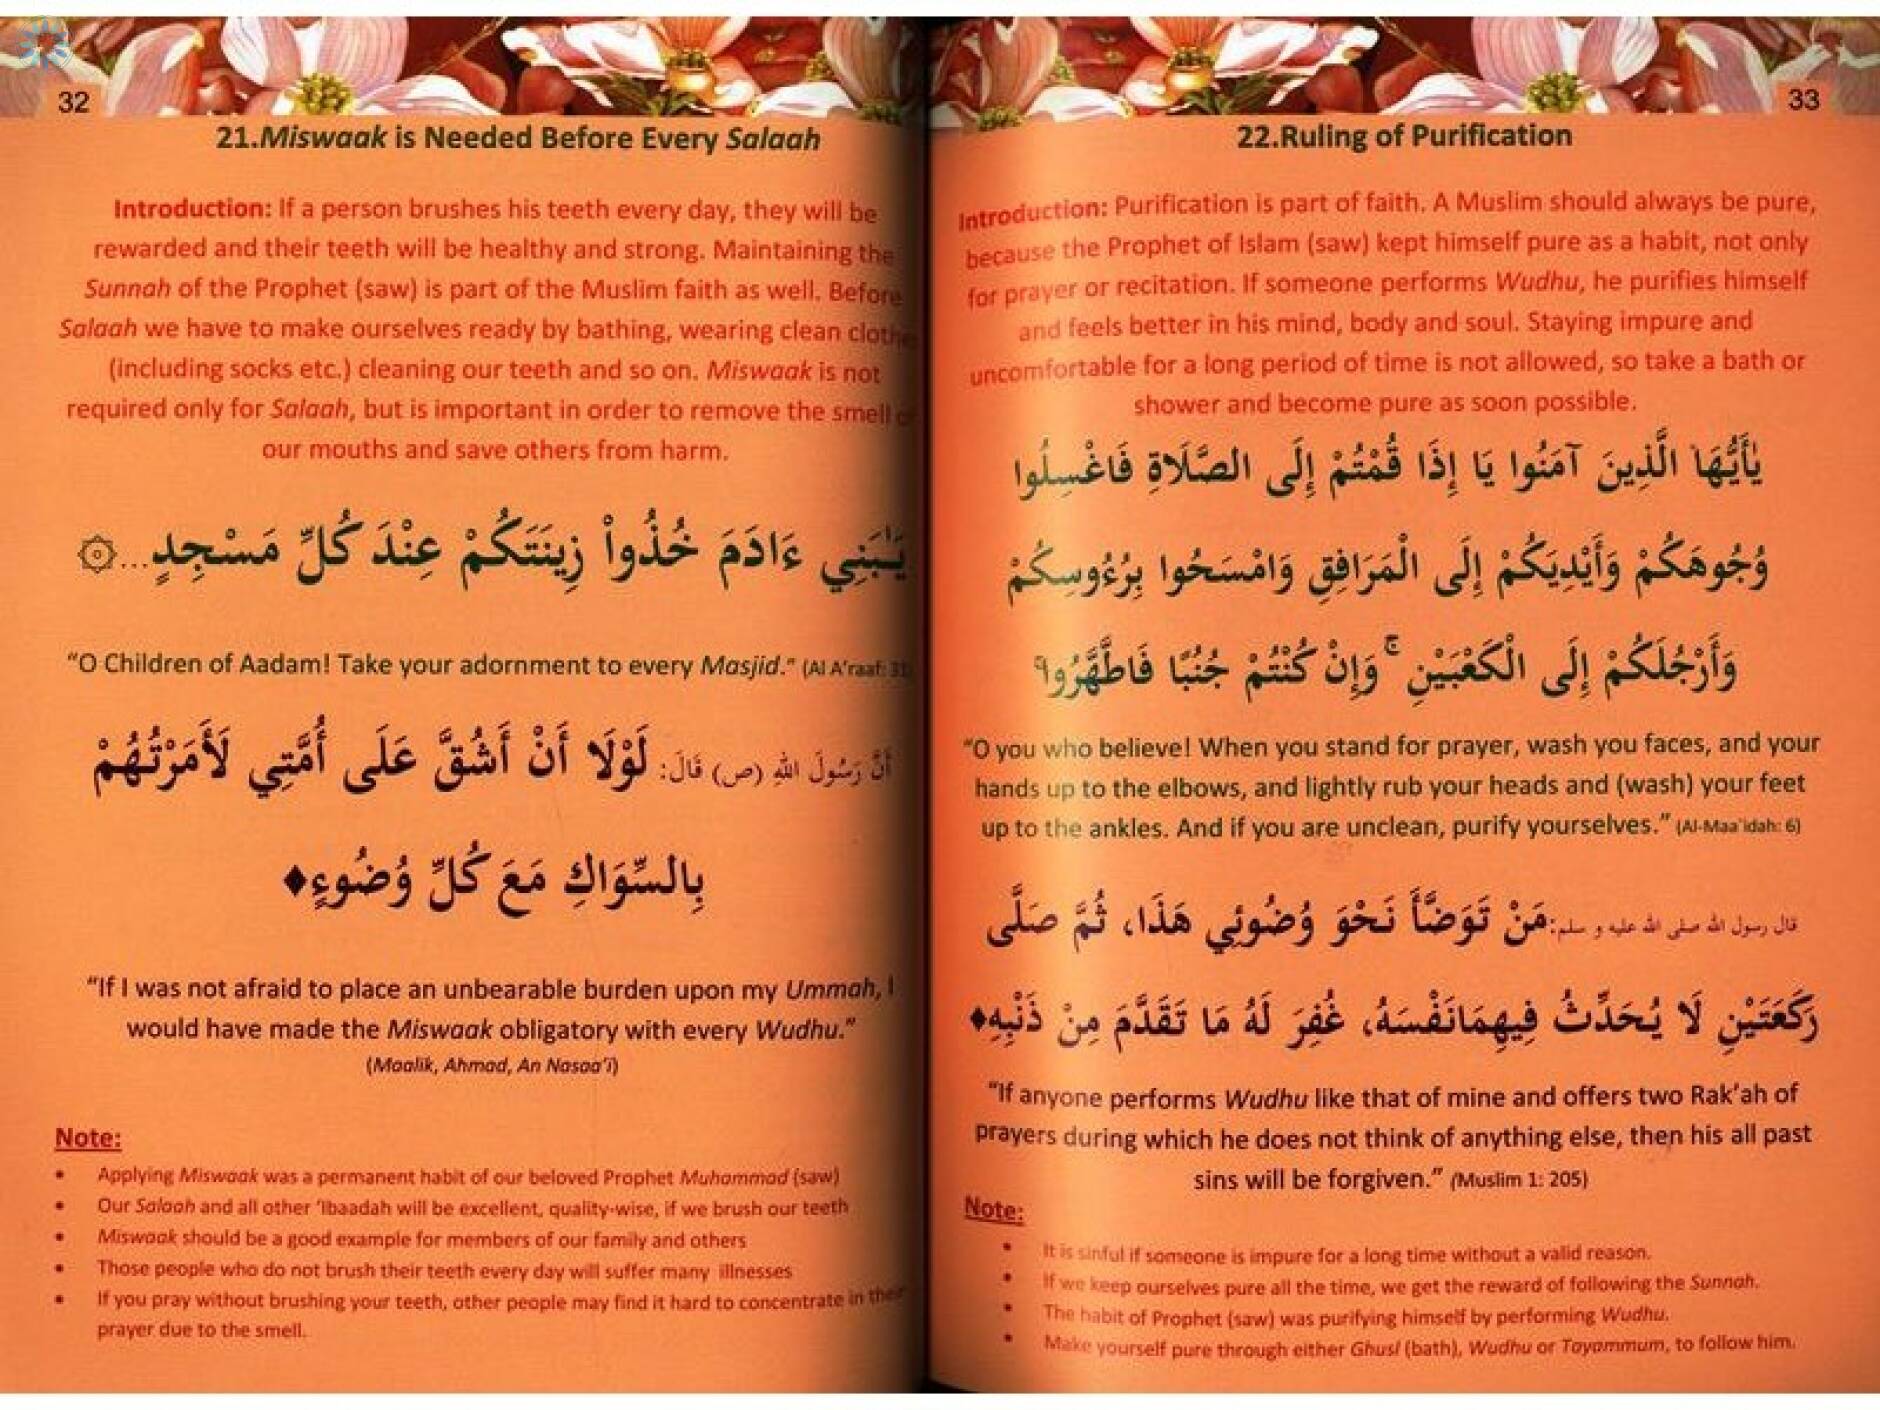 32
21.Miswaak is Needed Before Every Salaah
Introduction: If a person brushes his teeth every day, they will be
rewarded and their teeth will be healthy and strong. Maintaining the
Sunnah of the Prophet (saw) is part of the Muslim faith as well. Before
Salaah we have to make ourselves ready by bathing, wearing clean clothes
(including socks etc.) cleaning our teeth and so on. Miswaak is not
required only for Salaah, but is important in order to remove the smell of
our mouths and save others from harm.
يَٰبَنِي ءَادَمَ خُذُواْ زِينَتَكُمْ عِنْدَ كُلِّ مَسْجِدٍ...۞
“O Children of Aadam! Take your adornment to every Masjid.” (Al A’raaf: 31)
أَنَّ رَسُولَ اللهِ (ص) قَالَ: لَوْلَا أَنْ أَشُقَّ عَلَى أُمَّتِي لَأَمَرْتُهُمْ
بِالسِّوَاكِ مَعَ كُلِّ وُضُوءٍ♦
“If I was not afraid to place an unbearable burden upon my Ummah, I
would have made the Miswaak obligatory with every Wudhu.”
(Maalik, Ahmad, An Nasaa’i)
Note:
• Applying Miswaak was a permanent habit of our beloved Prophet Muhammad (saw)
• Our Salaah and all other ‘Ibaadah will be excellent, quality-wise, if we brush our teeth
• Miswaak should be a good example for members of our family and others
• Those people who do not brush their teeth every day will suffer many illnesses
• If you pray without brushing your teeth, other people may find it hard to concentrate in their
prayer due to the smell.
33
22.Ruling of Purification
Introduction: Purification is part of faith. A Muslim should always be pure,
because the Prophet of Islam (saw) kept himself pure as a habit, not only
for prayer or recitation. If someone performs Wudhu, he purifies himself
and feels better in his mind, body and soul. Staying impure and
uncomfortable for a long period of time is not allowed, so take a bath or
shower and become pure as soon possible.
يَٰأَيُّهَا الَّذِينَ آمَنُوا يَا إِذَا قُمْتُمْ إِلَى الصَّلَاةِ فَاغْسِلُوا
وُجُوهَكُمْ وَأَيْدِيَكُمْ إِلَى الْمَرَافِقِ وَامْسَحُوا بِرُءُوسِكُمْ
وَأَرْجُلَكُمْ إِلَى الْكَعْبَيْنِ ۚ وَإِنْ كُنْتُمْ جُنُبًا فَاطَّهَّرُوا
“O you who believe! When you stand for prayer, wash you faces, and your
hands up to the elbows, and lightly rub your heads and (wash) your feet
up to the ankles. And if you are unclean, purify yourselves.” (Al-Maa’idah: 6)
قال رسول الله صلى الله عليه و سلم:مَنْ تَوَضَّأَ نَحْوَ وُضُوئِي هَذَا، ثُمَّ صَلَّى
رَكَعَتَيْنِ لَا يُحَدِّثُ فِيهِمَانَفْسَهُ، غُفِرَ لَهُ مَا تَقَدَّمَ مِنْ ذَنْبِهِ♦
“If anyone performs Wudhu like that of mine and offers two Rak’ah of
prayers during which he does not think of anything else, then his all past
sins will be forgiven.” (Muslim 1: 205)
Note:
• It is sinful if someone is impure for a long time without a valid reason.
• If we keep ourselves pure all the time, we get the reward of following the Sunnah.
• The habit of Prophet (saw) was purifying himself by performing Wudhu.
• Make yourself pure through either Ghusl (bath), Wudhu or Tayammum, to follow him.